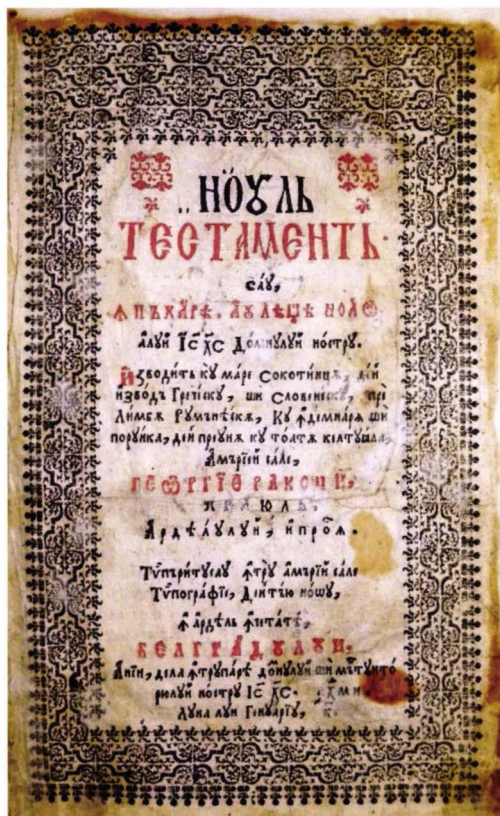 НОꙋЛЬ
ТЕСТАМЕНТЬ
сау,
ꙟпъкаре. ау лѣџѣ ноао
алуй Іс҃ Хс҃ Домнулуй ностру.
Изводить ку маре сокотинцъ, дин
извод Гречѣску, ши Словенеску, пре
Лимбѣ Румънѣскъ, Ку ꙟдемнарѣ ши
порунка, дей преунъ ку тоатъ келтуала,
Амъріей сале,
ГЕѠРГІЕ РАКОЦИ,
КРАЮЛЬ
Ардѣлулуй, и проч.
Типъритусау ꙟтру амъріей сале
Типографіе, Динтъю ноау,
ꙟ Ардѣль ꙟчетатѣ,
БЕЛГРАДУЛУИ,
Аній, дела ꙟтрупарѣ домнулуй ши мънтуито
рюлуй ностру Іс҃ Хс҃. ҂ахми.
луна луй Генуаріу, к.